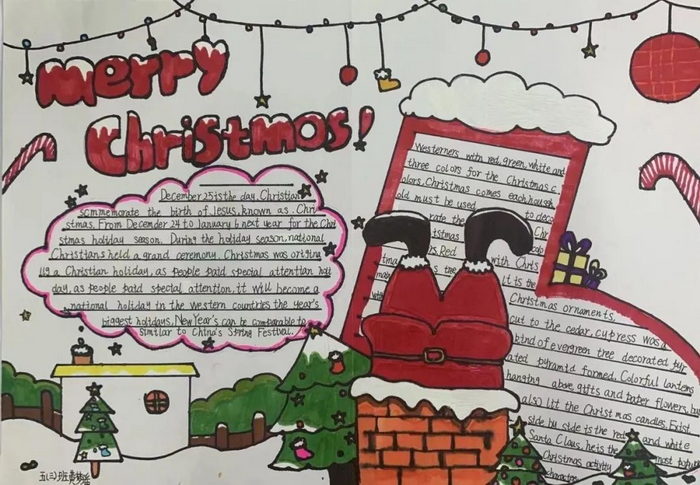 Merry
Christmas!
December 25 is the day, Christian
scmmemorate the birth of Jesus, known as. Chri
stmas. From December 24 to January 6 next year for the Chri
stmas holiday season. During the holiday season, national
Christians held a grand ceremony. Christmas was origing
lly a Christian holiday, as people paid special attention hol
day, as people paid special attention, it will become a
national holiday in the western countries the year's
biggest holidays. New Year's can be comparable to
similar to China's Spring Festival.
Westerners with red, green, white and
three colors for the Christmas c
olors, Christmas comes each hough
old must be used to deco
rate the Chr
istmas
rs. Red with Chris
tma
s the it is the
Christmas ornaments,
cut to the cedar, cypress was a
kind of evergreen tree decorated
ated pyramid formed. Colorful lanterns
hanging above, gifts and paper flowers,
also lit the Christmas candles.
side by side is the red and white
Santa Claus, he is the most popul
Christmas activity
character.
五(三)班